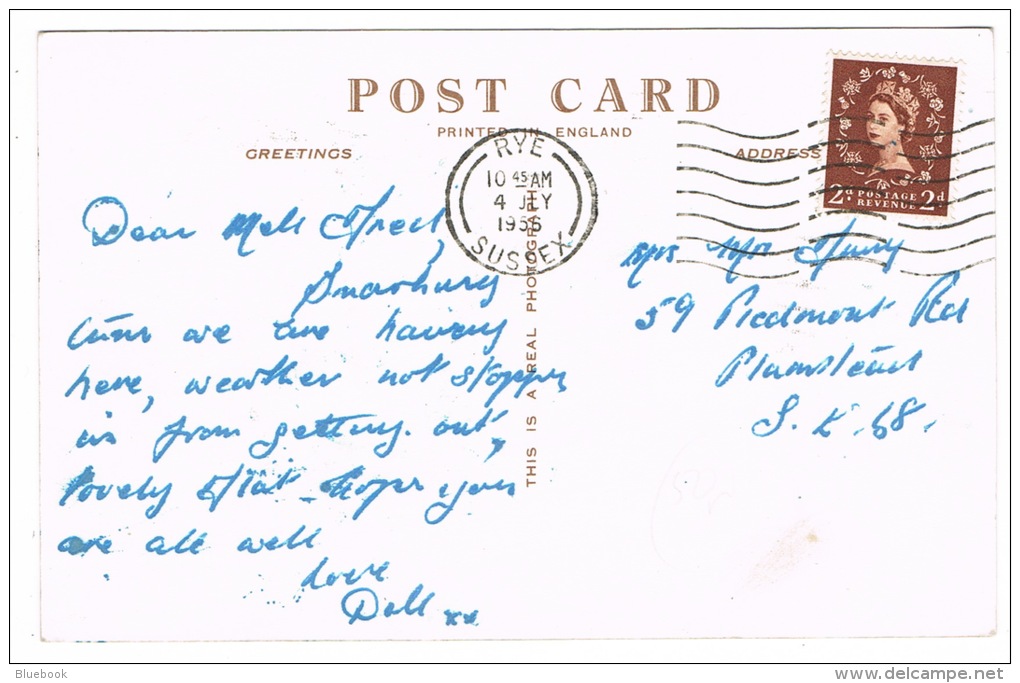 POST CARD
PRINTED IN ENGLAND
GREETINGS
ADDRESS
RYE
10 45 AM
4 JLY
1956
SUSSEX
2d POSTAGE REVENUE 2d
THIS IS A REAL PHOTOGRAPH
Dear
time we are having
here, weather not stopping
us from getting out,
lovely flat - Hope you
are all well
Love
Doll xx
Mrs
59 Piedmont Rd
Plumstead
S.E.18.
Bluebook
delcampe.net